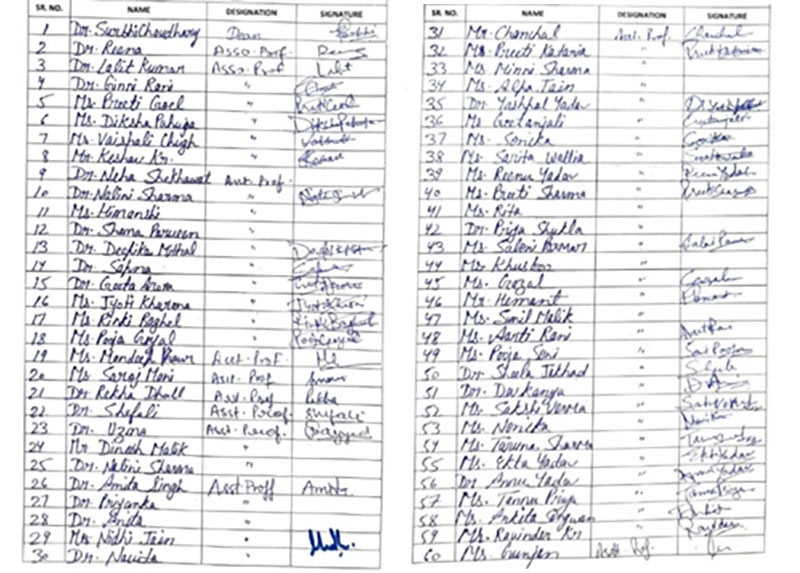 SR. NO. NAME DESIGNATION SIGNATURE
1 Dr. Surbhi Chaudhary Dean
2 Dr. Reena Asso. Prof. Reena
3 Dr. Lalit Kumar Asso. Prof Lalit
4 Dr. Ginni Rani "
5 Ms. Preeti Goel " Preeti Goel
6 Ms. Diksha Pahuja " Diksha Pahuja
7 Ms. Vaishali Chigh "
8 Mr. Keshav Kr. " Keshav
9 Dr. Neha Shekhawat Asst. Prof.
10 Dr. Nalini Sharma "
11 Ms. Himanshi "
12 Dr. Shama Parveen "
13 Dr. Deepika Mittal "
14 Dr. Sapna "
15 Dr. Geeta Arora "
16 Ms. Jyoti Kharona "
17 Ms. Rinki Raghel "
18 Ms. Pooja Goyal " Pooja Goyal
19 Ms. Mandeep Kaur Asst. Prof.
20 Ms. Saroj Mani Asst. Prof
21 Dr. Rekha Dhull Asst. Prof Rekha
22 Dr. Shefali Asst. Proof. Shefali
23 Dr. Uzma Asst. Proof.
24 Mr. Dinesh Malik "
25 Dr. Nalini Sharma "
26 Dr. Amita Singh Asst Proff Amita
27 Dr. Priyanka "
28 Dr. Anita "
29 Mrs. Nidhi Jain "
30 Dr. Navita
SR. NO. NAME DESIGNATION SIGNATURE
31 Mr. Chanchal Asst. Prof. Chanchal
32 Ms. Preeti Kataria " Preeti Kataria
33 Ms. Minni Sharma "
34 Ms. Alpa Jain "
35 Dr. Yashpal Yadav " Dr Yashpal
36 Ms. Geetanjali " Geetanjali
37 Ms. Sonika " Sonika
38 Ms. Sarita Wallia "
39 Ms. Reenu Yadav " Reenu Yadav
40 Ms. Preeti Sharma "
41 Ms. Rita "
42 Dr. Priya Shukla "
43 Ms. Saloni Parmar "
44 Ms. Khusboo "
45 Ms. Gozal " Gozal
46 Mr. Hemant " Hemant
47 Ms. Sunil Malik "
48 Ms. Aarti Rani "
49 Ms. Pooja Soni "
50 Dr. Sheela Jakhad " Sheela
51 Dr. Dav Kanya "
52 Ms. Sakshi Verma "
53 Ms. Nonicka "
54 Ms. Taruna Sharma "
55 Ms. Ekta Yadav " Ekta Yadav
56 Dr. Annu Yadav " Annu Yadav
57 Ms. Tannu Priya " Tannu Priya
58 Ms. Ankita "
59 Ms. Ravinder Kr "
60 Ms. Gunjan Asstt. Prof.